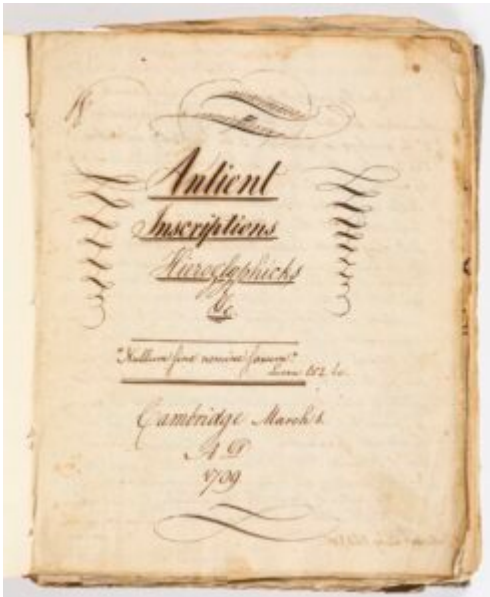 Antient
Inscriptions
Hieroglyphicks
&c
"Nullum sine nomine saxum"
Cambridge March 1.
A D
1799